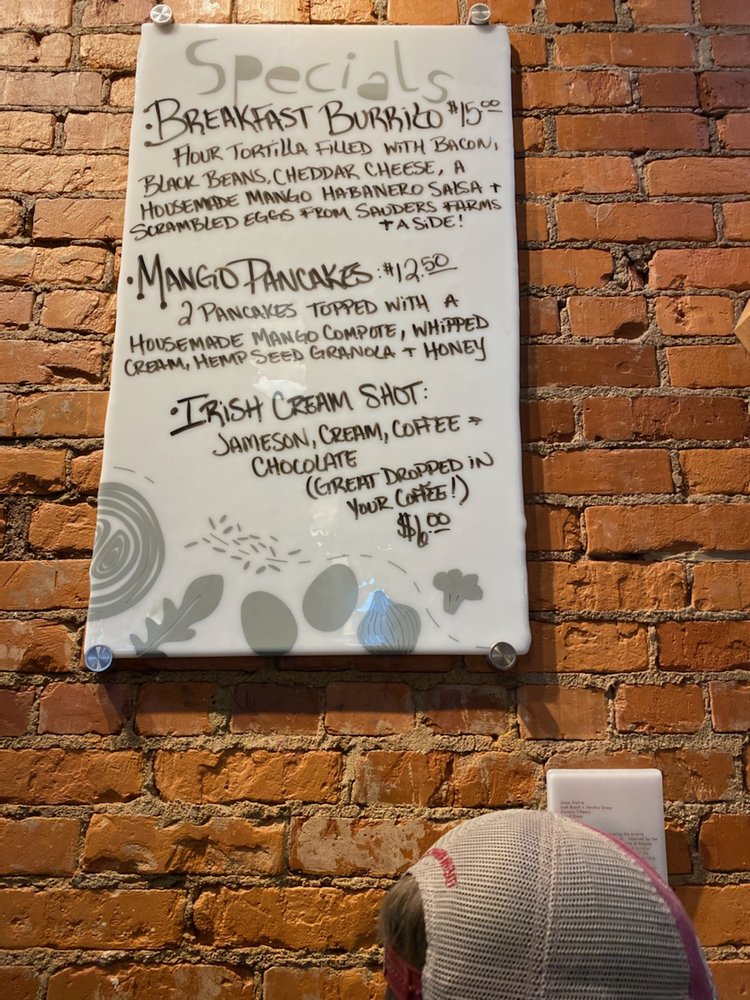 Specials
• BREAKFAST BURRITO $15.00
FLOUR TORTILLA FILLED WITH BACON,
BLACK BEANS, CHEDDAR CHEESE, A
HOUSEMADE MANGO HABANERO SALSA +
SCRAMBLED EGGS FROM SAUDERS FARMS
+ A SIDE!
• MANGO PANCAKES: $12.50
2 PANCAKES TOPPED WITH A
HOUSEMADE MANGO COMPOTE, WHIPPED
CREAM, HEMP SEED GRANOLA + HONEY
• IRISH CREAM SHOT:
JAMESON, CREAM, COFFEE +
CHOCOLATE
(GREAT DROPPED IN
YOUR COFFEE!)
$6.00